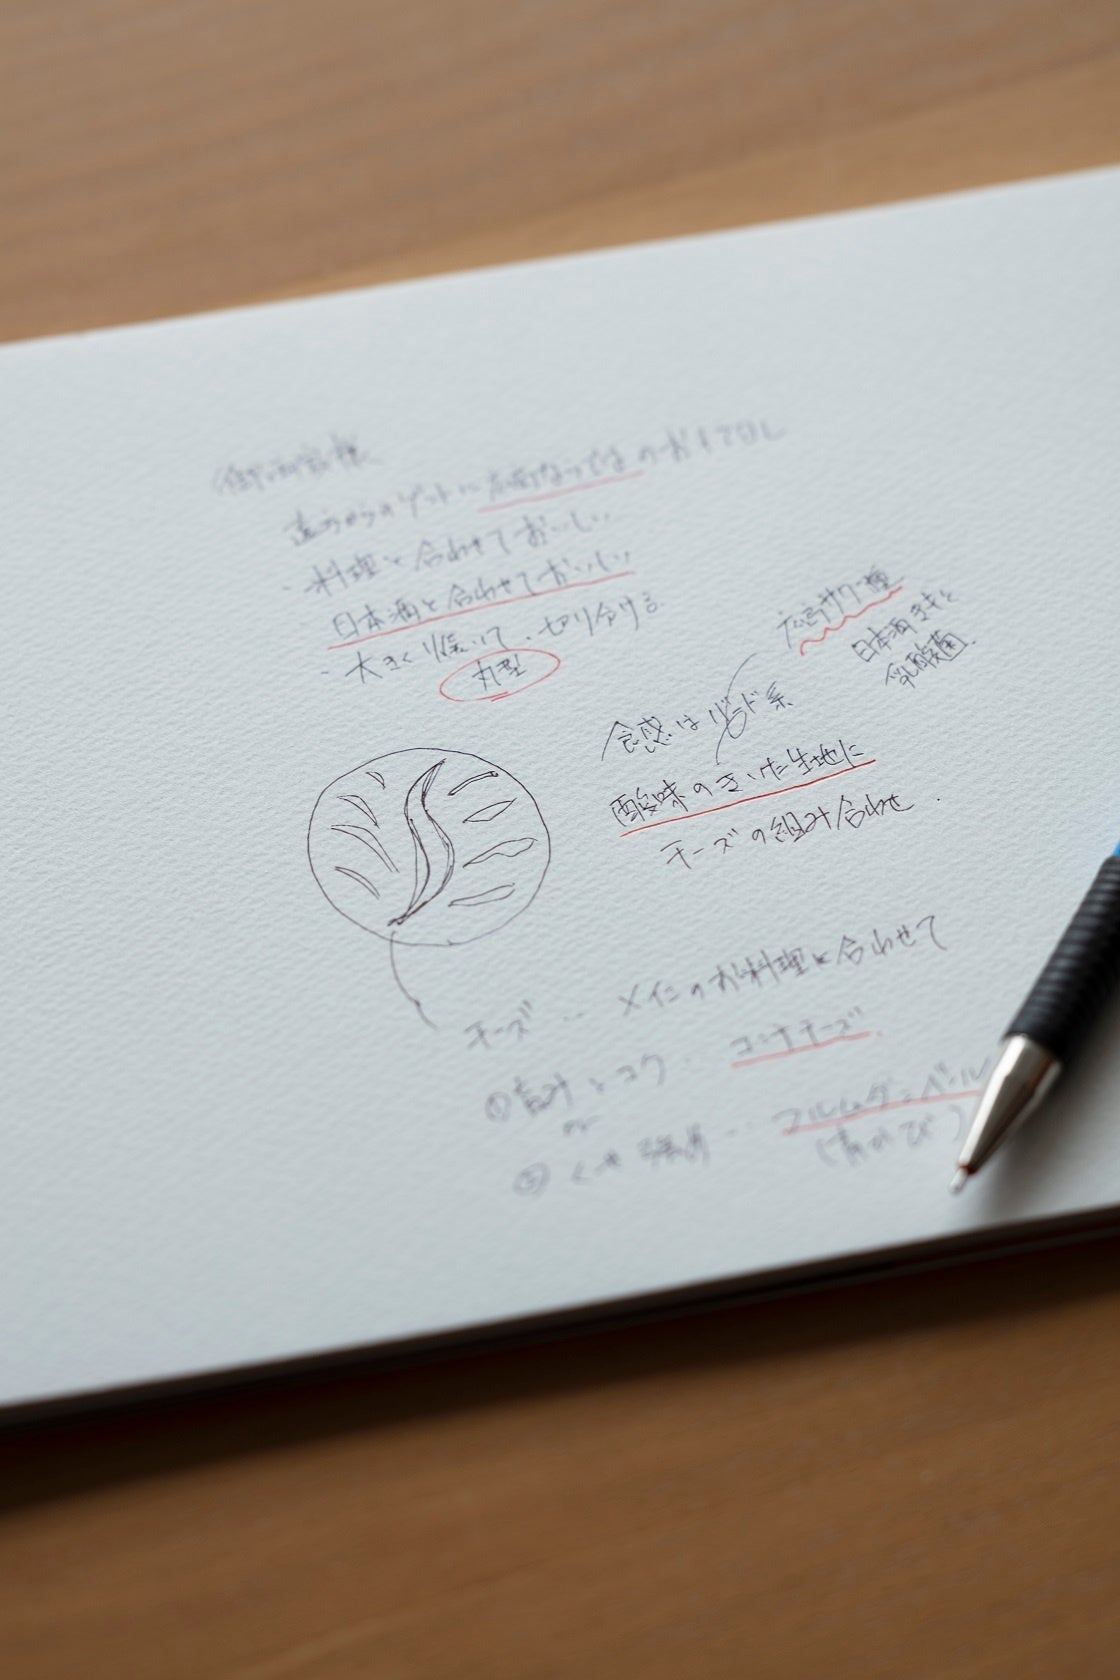 遠方からのゲスト… 広島ならではのおもてなし
・料理と合わせておいしい
・日本酒と合わせておいしい
・大きく焼いて、切り分ける
丸型
広島サワー種
日本酒きもと
乳酸菌
食感はリーンド系
酸味のきいた生地に
チーズの組み合わせ.
チーズ … メインのお料理と合わせて
① 旨みとコク … コンテチーズ.
or
② くせ強済 … フルムダンベール
(青かび)